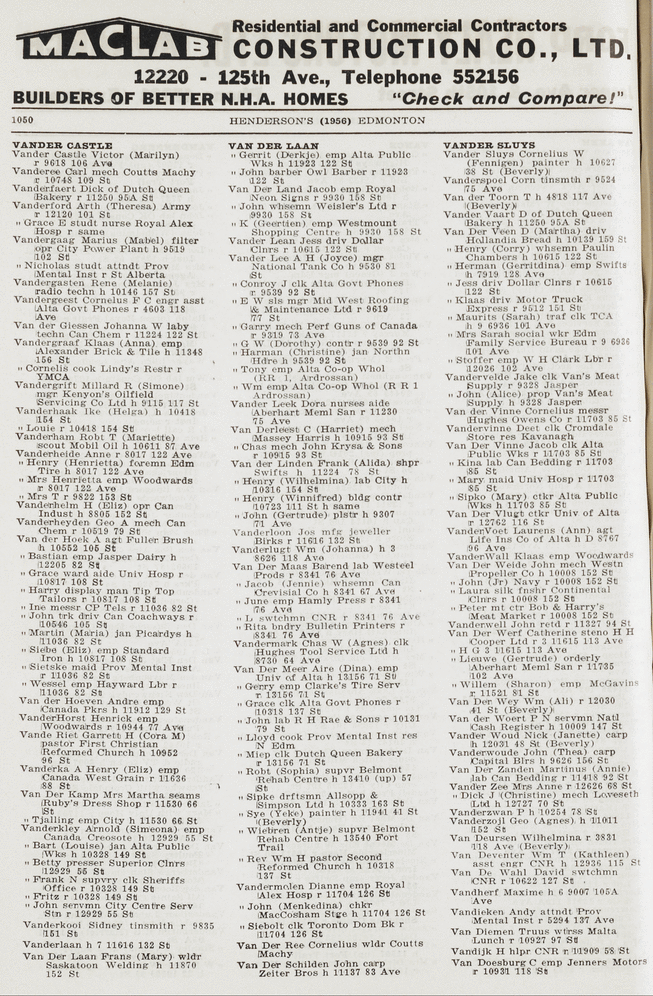 MACLAB
Residential and Commercial Contractors
CONSTRUCTION CO., LTD.
12220 - 125th Ave., Telephone 552156
BUILDERS OF BETTER N.H.A. HOMES "Check and Compare!"
1050 HENDERSON'S (1956) EDMONTON
VANDER CASTLE
Vander Castle Victor (Marilyn)
r 9618 106 Ave
Vanderee Carl mech Coutts Machy
r 10748 109 St
Vanderfaert Dick of Dutch Queen
Bakery r 11250 95A St
Vanderford Arth (Theresa) Army
r 12120 101 St
" Grace E studt nurse Royal Alex
Hosp r same
Vandergaag Marius (Mabel) filter
opr City Power Plant h 9519
102 St
" Nicholas studt attndt Prov
Mental Inst r St Alberta
Vandergasten Rene (Melanie)
radio techn h 10146 157 St
Vandergeest Cornelus F C engr asst
Alta Govt Phones r 4603 118
Ave
Van der Giessen Johanna W laby
techn Can Chem r 11224 122 St
Vandergraaf Klaas (Anna) emp
Alexander Brick & Tile h 11348
156 St
" Cornelis cook Lindy's Restr r
YMCA
Vandergrift Millard R (Simone)
mgr Kenyon's Oilfield
Servicing Co Ltd h 9115 117 St
Vanderhaak Ike (Helga) h 10418
154 St
" Louie r 10418 154 St
Vanderham Robt T (Mariette)
scout Mobil Oil h 10611 87 Ave
Vanderheide Anne r 8017 122 Ave
" Henry (Henrietta) foremn Edm
Tire h 8017 122 Ave
" Mrs Henrietta emp Woodwards
r 8017 122 Ave
" Mrs T r 9822 153 St
Vanderhelm H (Eliz) opr Can
Indust h 8805 152 St
Vanderheyden Geo A mech Can
Chem r 10519 79 St
Van der Hoek A agt Fuller Brush
h 10552 105 St
" Bastian emp Jasper Dairy h
12205 82 St
" Grace ward aide Univ Hosp r
10817 108 St
" Harry display man Tip Top
Tailors r 10817 108 St
" Ine messr CP Tels r 11036 82 St
" John trk driv Can Coachways r
10546 105 St
" Martin (Maria) jan Picardys h
11036 82 St
" Siebe (Eliz) emp Standard
Iron h 10817 108 St
" Sietske maid Prov Mental Inst
r 11036 82 St
" Wessel emp Hayward Lbr r
11036 82 St
Van der Hoeven Andre emp
Canada Pkrs h 11912 129 St
VanderHorst Henrick emp
Woodwards r 10944 77 Ave
Vande Riet Garrett H (Cora M)
pastor First Christian
Reformed Church h 10952
96 St
Vanderka A Henry (Eliz) emp
Canada West Grain r 11636
88 St
Van Der Kamp Mrs Martha seams
Ruby's Dress Shop r 11530 66
St
" Tjalling emp City h 11530 66 St
Vanderkley Arnold (Simeona) emp
Canada Creosote h 12929 55 St
" Bart (Louise) jan Alta Public
Wks h 10328 149 St
" Betty presser Superior Clnrs
12929 55 St
" Frank N supvry clk Sheriffs
Office r 10328 149 St
" Fritz r 10328 149 St
" John servmn City Centre Serv
Stn r 12929 55 St
Vanderkooi Sidney tinsmith r 9835
151 St
Vanderlaan h 7 11616 132 St
Van Der Laan Frans (Mary) wldr
Saskatoon Welding h 11870
152 St
VAN DER LAAN
" Gerrit (Derkje) emp Alta Public
Wks h 11923 122 St
" John barber Owl Barber r 11923
122 St
Van Der Land Jacob emp Royal
Neon Signs r 9930 158 St
" John whsemn Weisler's Ltd r
9930 158 St
" K (Geertien) emp Westmount
Shopping Centre h 9930 158 St
Vander Lean Jess driv Dollar
Clnrs r 10615 122 St
Vander Lee A H (Joyce) mgr
National Tank Co h 9530 81
St
" Conroy J clk Alta Govt Phones
r 9539 92 St
" E W sls mgr Mid West Roofing
& Maintenance Ltd r 9619
77 St
" Garry mech Perf Guns of Canada
r 9319 73 Ave
" G W (Dorothy) contr r 9539 92 St
" Harman (Christine) jan Northn
Hdre h 9539 92 St
" Tony emp Alta Co-op Whol
(RR 1, Ardrossan)
" Wm emp Alta Co-op Whol (R R 1
Ardrossan)
Vander Leek Dora nurses aide
Aberhart Meml San r 11230
75 Ave
Van Derleest C (Harriet) mech
Massey Harris h 10915 93 St
" Chas mech John Krysa & Sons
r 10915 93 St
Van der Linden Frank (Alida) shpr
Swifts h 11224 78 St
" Henry (Wilhelmina) lab City h
10316 154 St
" Henry (Winnifred) bldg contr
10723 111 St h same
" John (Gertrude) plstr h 9307
71 Ave
Vanderloon Jos mfr jeweller
Birks r 11616 132 St
Vanderlugt Wm (Johanna) h 3
8626 118 Ave
Van Der Maas Barend lab Westeel
Prods r 8341 76 Ave
" Jacob (Jennie) whsemn Can
Crevisial Co h 8341 67 Ave
" June emp Hamly Press r 8341
76 Ave
" L swtchmn CNR r 8341 76 Ave
" Rita bndry Bulletin Printers r
8341 76 Ave
Vandermark Chas W (Agnes) clk
Hughes Tool Service Ltd h
8730 64 Ave
Van Der Meer Aire (Dina) emp
Univ of Alta h 13156 71 St
" Gerry emp Clarke's Tire Serv
r 13156 71 St
" Grace clk Alta Govt Phones r
10318 137 St
" John lab R H Rae & Sons r 10131
79 St
" Lloyd cook Prov Mental Inst res
N Edm
" Miep clk Dutch Queen Bakery
r 13156 71 St
" Robt (Sophia) supvr Belmont
Rehab Centre h 13410 (up) 57
St
" Sipke drftsmn Allsopp &
Simpson Ltd h 10333 163 St
" Sye (Yeke) painter h 11941 41 St
(Beverly)
" Wiebren (Antje) supvr Belmont
Rehab Centre h 13540 Fort
Trail
" Rev Wm H pastor Second
Reformed Church h 10318
137 St
Vandermolen Dianne emp Royal
Alex Hosp r 11704 126 St
" John (Menkedina) chkr
MacCosham Stge h 11704 126 St
" Siebolt clk Toronto Dom Bk r
11704 126 St
Van Der Ree Cornelius wldr Coutts
Machy
Van Der Schilden John carp
Zeiter Bros h 11137 83 Ave
VANDER SLUYS
Vander Sluys Cornelius W
(Fennigen) painter h 10627
38 St (Beverly)
Vanderspoel Corn tinsmth r 9524
75 Ave
Van der Toorn T h 4818 117 Ave
(Beverly)
Van der Vaart D of Dutch Queen
Bakery h 11250 95A St
Van Der Veen D (Martha) driv
Hollandia Bread h 10139 159 St
" Henry (Corry) whsemn Paulin
Chambers h 10615 122 St
" Herman (Gerritdina) emp Swifts
h 7919 128 Ave
" Jess driv Dollar Clnrs r 10615
122 St
" Klaas driv Motor Truck
Express r 9512 151 St
" Maurits (Sarah) traf clk TCA
h 9 6936 101 Ave
" Mrs Sarah social wkr Edm
Family Service Bureau r 9 6936
101 Ave
" Stoffer emp W H Clark Lbr r
12026 102 Ave
Vandervelde Jake clk Van's Meat
Supply r 9328 Jasper
" John (Alice) prop Van's Meat
Supply h 9328 Jasper
Van der Vinne Cornelius messr
Hughes Owens Co r 11703 85 St
Vandervinne Deet clk Cromdale
Store res Kavanagh
Van Der Vinne Jacob clk Alta
Public Wks r 11703 85 St
" Kina lab Can Bedding r 11703
85 St
" Mary maid Univ Hosp r 11703
85 St
" Sipko (Mary) ctkr Alta Public
Wks h 11703 85 St
Van Der Vlugt ctkr Univ of Alta
r 12762 116 St
VanderVoet Laurens (Ann) agt
Life Ins Co of Alta h D 8767
96 Ave
VanderWall Klaas emp Woodwards
Van Der Weide John mech Westn
Propeller Co h 10008 152 St
" John (Jr) Navy r 10008 152 St
" Laura silk fnshr Continental
Clnrs r 10008 152 St
" Peter mt ctr Bob & Harry's
Meat Market r 10008 152 St
Vanderwell John retd r 11327 94 St
Van Der Werf Catherine steno H H
Cooper Ltd r 3 11615 113 Ave
" H G 3 11615 113 Ave
" Lieuwe (Gertrude) orderly
Aberhart Meml San r 11735
102 Ave
" Willem (Sharon) emp McGavins
r 11521 81 St
Van Der Wey Wm (Ali) r 12030
41 St (Beverly)
van der Woert P N servmn Natl
Cash Register h 10009 147 St
Vander Woud Nick (Janette) carp
h 12031 48 St (Beverly)
Vanderwoude John (Thea) carp
Capital Blrs h 9626 156 St
Van Der Zanden Martinus (Annie)
lab Can Bedding r 11418 92 St
Vander Zee Mrs Anne r 12626 68 St
" Dick J (Christine) mech Loveseth
Ltd h 12727 70 St
Vanderzwan P h 10254 78 St
Vanderzojl Geo (Agnes) h 11011
152 St
Van Deursen Wilhelmina r 3831
118 Ave (Beverly)
Van Deventer Wm T (Kathleen)
asst engr CNR h 12936 115 St
Van De Wahl David swtchmn
CNR r 10622 127 St
Vandherf Maxime h 6 9007 105A
Ave
Vandieken Andy attndt Prov
Mental Inst r 5294 137 Ave
Van Diemen Truus wtrss Malta
Lunch r 10927 97 St
Vandijk H hlpr CNR r 11909 58 St
Van Doesburg C emp Jenners Motors
r 10931 118 St